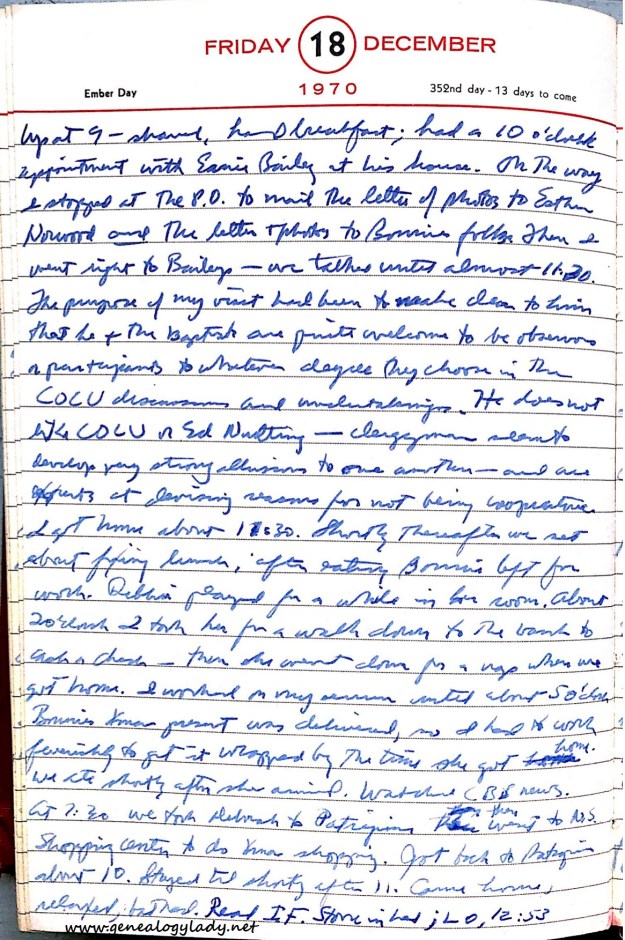 FRIDAY 18 DECEMBER
1970
Ember Day
352nd day - 13 days to come
Up at 9 – shaved, had breakfast; had a 10 o'clock
appointment with Ernie Bailey at his house. On the way
I stopped at the P.O. to mail the letter & photos to Esther
Norwood and the letter & photos to Bonnies folks. Then I
went right to Baileys – we talked until almost 11:30.
The purpose of my visit had been to make clear to him
that he & the Baptists are quite welcome to be observers
or participants to whatever degree they choose in the
COCU discussions and undertakings. He does not
like COCU or Ed Nutting – clergymen seem to
develop very strong to one another – and are
experts at devising reasons for not being cooperative.
I got home about 11:30. Shortly thereafter we set
about fixing lunch; after eating Bonnie left for
work. Debbie played for a while in her room. About
2 o'clock I took her for a walk down to the bank to
cash a check – then she went down for a nap when we
got home. I worked on my sermon until about 5 o'clock
Bonnies Xmas present was delivered, so I had to work
feverishly to get it wrapped by the time she got home.
We ate shortly after she arrived. Watched CBS news.
At 7:30 we took Deborah to then went to N.S.
Shopping center to do Xmas shopping. Got back to
about 10. Stayed til shortly after 11. Came home,
relaxed, bathed. Read I.F. Stone in bed; LO, 12:53
www.genealogylady.net